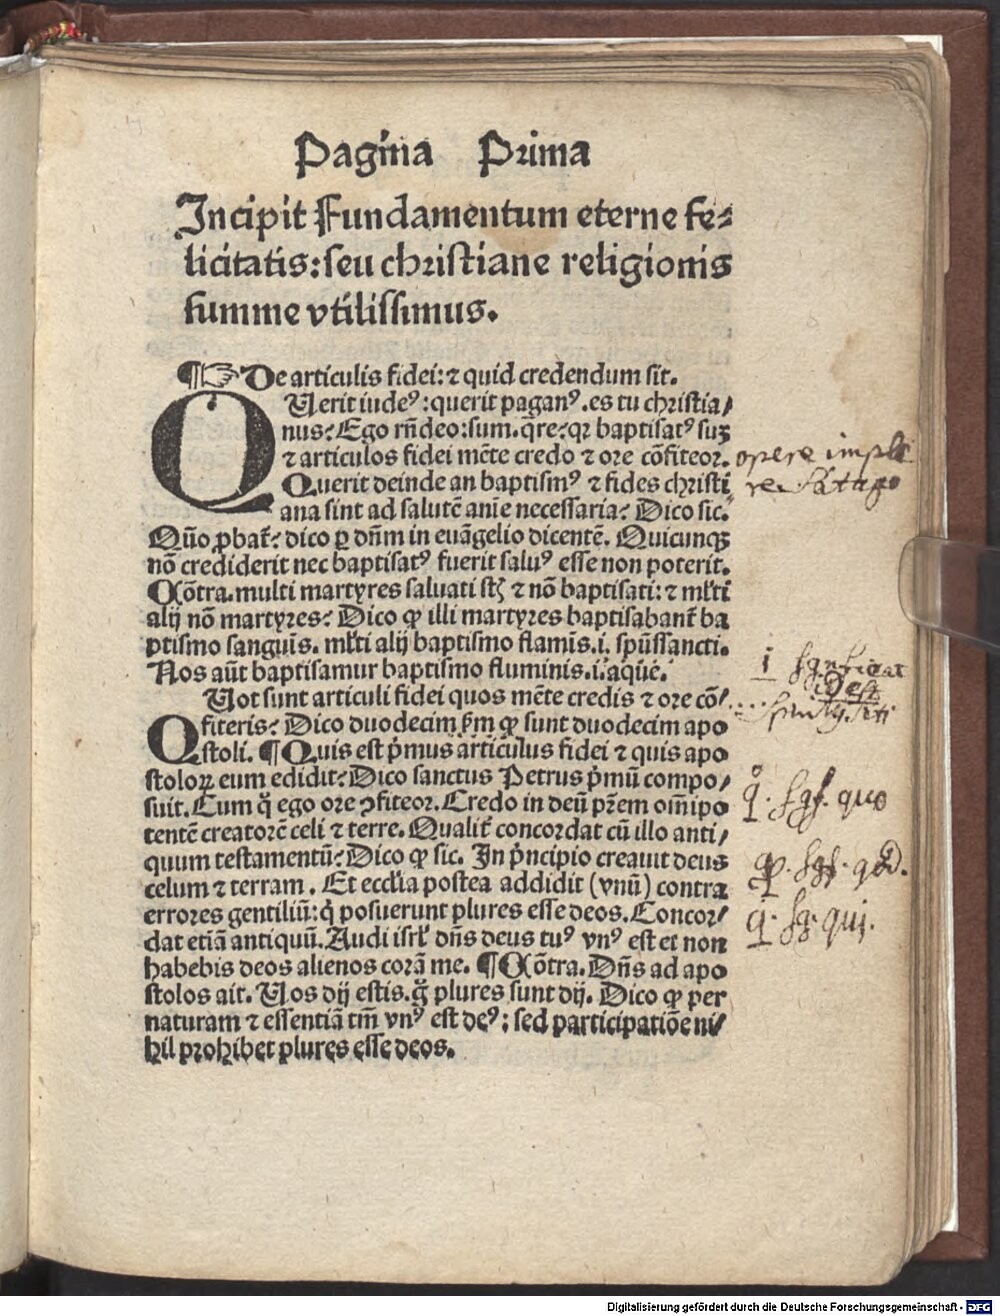 Pagina Prima
Incipit Fundamentum eterne fe⸗
licitatis: seu christiane religionis
summe vtilissimus.
¶☞De articulis fidei: ⁊ quid credendum sit.
QUerit iudeꝰ: querit paganꝰ. es tu christia/
nus? Ego rñdeo: sum. q̄re? qꝛ baptisatꝰ suꝫ
⁊ articulos fidei mēte credo ⁊ ore cōfiteor.
Querit deinde an baptismꝰ ⁊ fides christi
ana sint ad salutē anīe necessaria? Dico sic.
Quō ꝓbat᷑? dico ꝑ dn̄m in euāgelio dicentē. Quicunqꝫ
nō crediderit nec baptisatꝰ fuerit saluꝰ esse non poterit.
¶Cōtra. multi martyres saluati st̄ ⁊ nō baptisati: ⁊ ml̄ti
alij nō martyres? Dico ꝙ illi martyres baptisabant᷑ ba
ptismo sanguīs. ml̄ti alij baptismo flamīs .i. spūssancti.
Nos aūt baptisamur baptismo fluminis .i. aque.
QUot sunt articuli fidei quos mēte credis ⁊ ore cō/
fiteris? Dico duodecim ẜm ꝙ sunt duodecim apo
stoli. ¶Quis est p̄mus articulus fidei ⁊ quis apo
stoloꝝ eum edidit? Dico sanctus Petrus p̄mū compo/
suit. Eum q̄ ego ore ꝯfiteor. Credo in deū pr̄em om̄ipo
tentē creatorē celi ⁊ terre. Qualit᷑ concordat cū illo anti/
quum testamentū? Dico ꝙ sic. In p̄ncipio creauit deus
celum ⁊ terram. Et eccl̄ia postea addidit (vnū) contra
errores gentiliū: q̇ posuerunt plures esse deos. Concor/
dat etiā antiquū. Audi isrl̄ dn̄s deus tuꝰ vnꝰ est et non
habebis deos alienos corā me. ¶Cōtra. Dn̄s ad apo
stolos ait. Uos dij estis. g̊ plures sunt dij. Dico ꝙ per
naturam ⁊ essentiā tm̄ vnꝰ est deꝰ; sed participatiōe ni/
hil prohibet plures esse deos.
opere imple
re satago
i significat
idest
q̊. sgf. quo
ꝙ. sgf. qđ.
q̇. sg. qui.
Digitalisierung gefördert durch die Deutsche Forschungsgemeinschaft - DFG